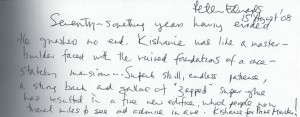 Peter Edwards
15 August '08
Seventy-something years having ended
He gnashes no end. Kishanie was like a master-
builder faced with the ruined foundations of a once-
stately mansion... Superb skill, endless patience,
a strong back and gallons of "zapped" super-glue
has resulted in a fine new edifice, which people now
travel miles to see and admire in awe. Kishanie for